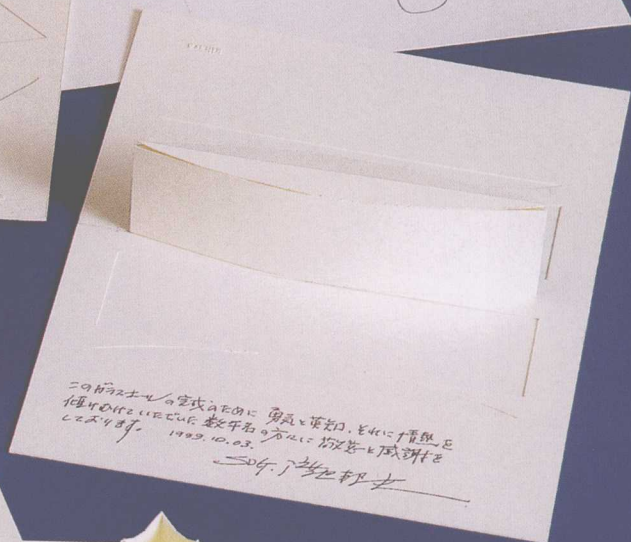 このガラスホールの完成のために 勇気と英知、それに情熱を
傾むけていただいた 数千名の方々に 敬意と感謝を
しております。 1999.10.03.
SDG. 渡辺邦夫